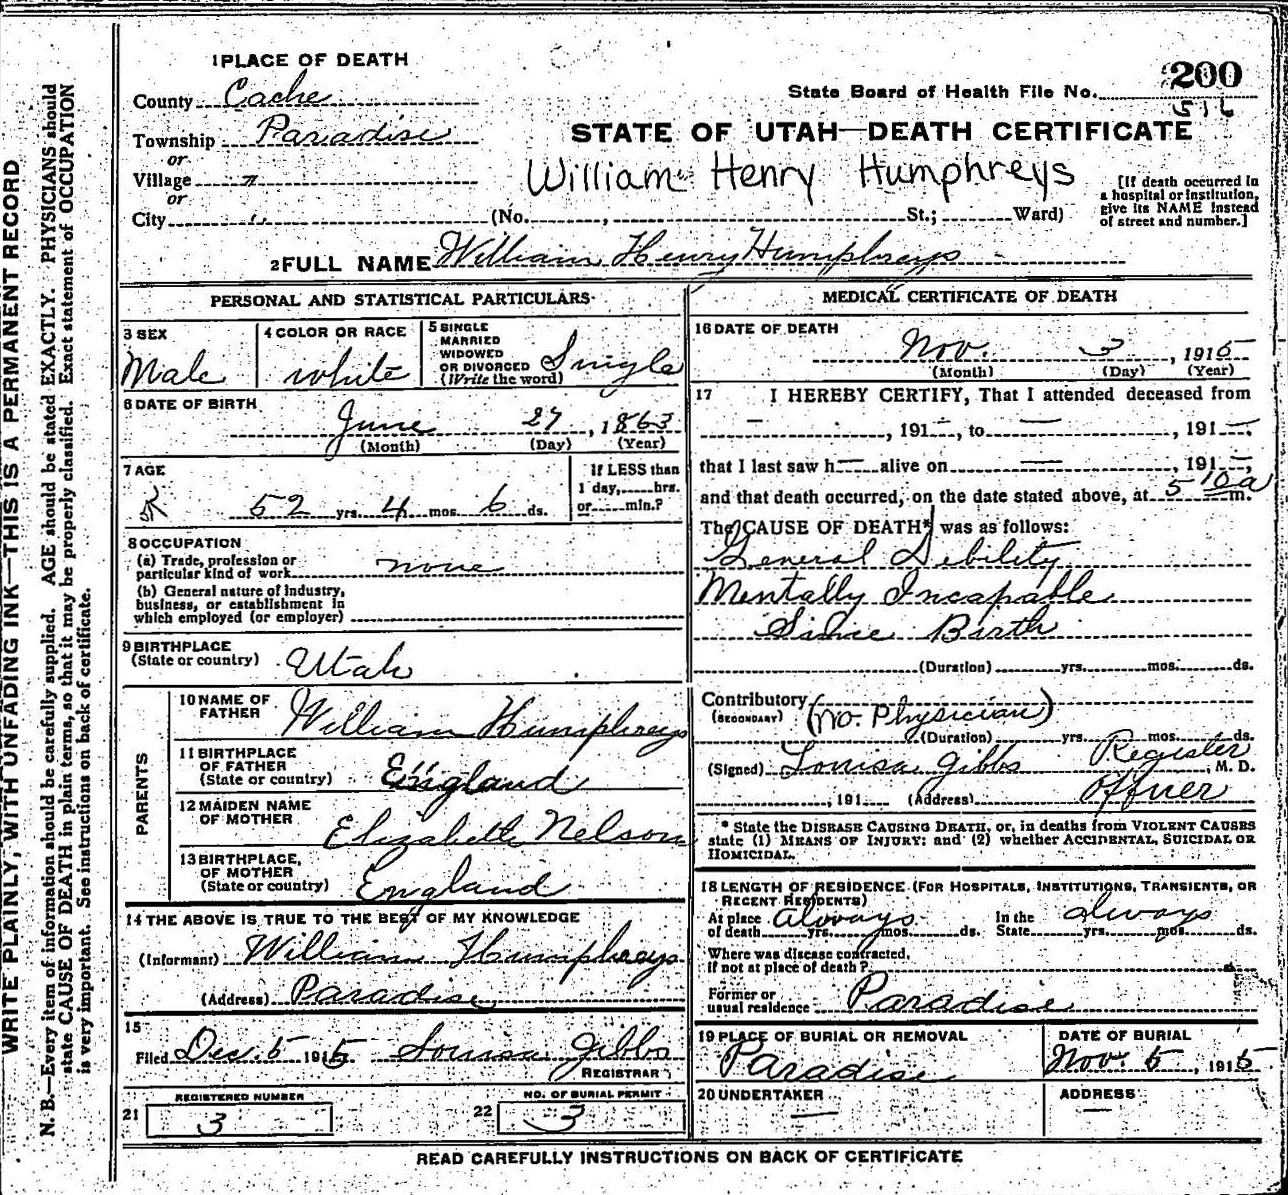 WRITE PLAINLY, WITH UNFADING INK—THIS IS A PERMANENT RECORD
N. B.—Every item of information should be carefully supplied. AGE should be stated EXACTLY. PHYSICIANS should
state CAUSE OF DEATH in plain terms, so that it may be properly classified. Exact statement of OCCUPATION
is very important. See instructions on back of certificate.
1 PLACE OF DEATH
County Cache
Township Paradise
or
Village "
or
City "
200
State Board of Health File No.
516
STATE OF UTAH—DEATH CERTIFICATE
William Henry Humphreys
(No. , St.; Ward)
[If death occurred in
a hospital or institution,
give its NAME instead
of street and number.]
2 FULL NAME William Henry Humphreys
PERSONAL AND STATISTICAL PARTICULARS
3 SEX
Male
4 COLOR OR RACE
white
5 SINGLE
MARRIED
WIDOWED
OR DIVORCED
(Write the word)
Single
6 DATE OF BIRTH
June 27, 1863
(Month) (Day) (Year)
7 AGE
52 yrs. 4 mos. 6 ds.
If LESS than
1 day, hrs.
or min.?
8 OCCUPATION
(a) Trade, profession or
particular kind of work none
(b) General nature of industry,
business, or establishment in
which employed (or employer)
9 BIRTHPLACE
(State or country) Utah
PARENTS
10 NAME OF
FATHER William Humphreys
11 BIRTHPLACE
OF FATHER
(State or country) England
12 MAIDEN NAME
OF MOTHER Elizabeth Nelson
13 BIRTHPLACE,
OF MOTHER
(State or country) England
14 THE ABOVE IS TRUE TO THE BEST OF MY KNOWLEDGE
(Informant) William Humphreys
(Address) Paradise
15
Filed Dec. 5 1915 Louisa Gibbs
REGISTRAR
21
REGISTERED NUMBER
3
22
NO. OF BURIAL PERMIT
3
MEDICAL CERTIFICATE OF DEATH
16 DATE OF DEATH
Nov. 3, 1915
(Month) (Day) (Year)
17 I HEREBY CERTIFY, That I attended deceased from
— , 191—, to — , 191—,
that I last saw h— alive on — , 191—,
and that death occurred, on the date stated above, at 5 10 a m.
The CAUSE OF DEATH* was as follows:
General Debility
Mentally Incapable
Since Birth
(Duration) yrs. mos. ds.
Contributory (no. Physician)
(SECONDARY)
(Duration) yrs. mos. ds.
(Signed) Louisa Gibbs Register, M. D.
, 191 (Address) Officer
* State the DISEASE CAUSING DEATH, or, in deaths from VIOLENT CAUSES
state (1) MEANS OF INJURY; and (2) whether ACCIDENTAL, SUICIDAL OR
HOMICIDAL.
18 LENGTH OF RESIDENCE (FOR HOSPITALS, INSTITUTIONS, TRANSIENTS, OR
RECENT RESIDENTS)
At place
of death always yrs. mos. ds.
In the
State always yrs. mos. ds.
Where was disease contracted,
if not at place of death?
Former or
usual residence Paradise
19 PLACE OF BURIAL OR REMOVAL
Paradise
DATE OF BURIAL
Nov. 5, 1915
20 UNDERTAKER
—
ADDRESS
—
READ CAREFULLY INSTRUCTIONS ON BACK OF CERTIFICATE